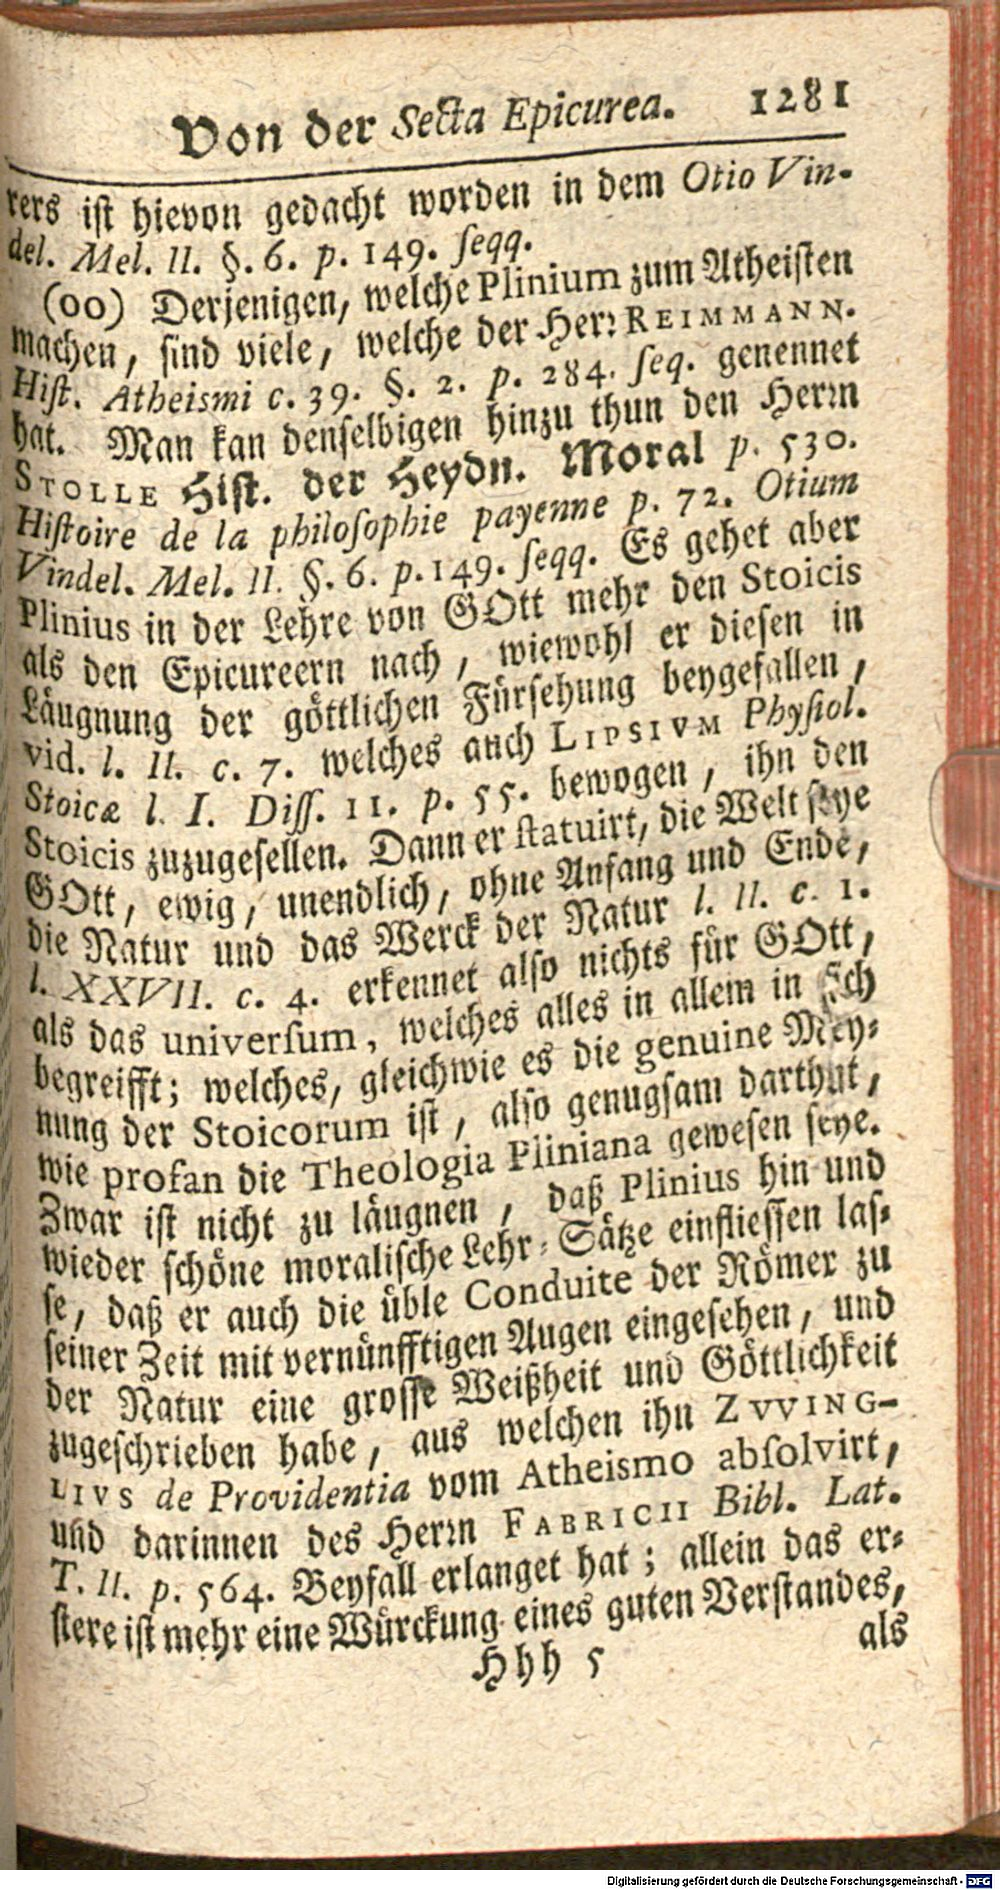 Von der Secta Epicurea. 1281
rers ist hievon gedacht worden in dem Otio Vin-
del. Mel. II. §. 6. p. 149. seqq.
(oo) Derjenigen, welche Plinium zum Atheisten
machen, sind viele, welche der Herr REIMMANN.
Hist. Atheismi c. 39. §. 2. p. 284. seq. genennet
hat. Man kan denselbigen hinzu thun den Herrn
STOLLE Hist. der Heydn. Moral p. 530.
Histoire de la philosophie payenne p. 72. Otium
Vindel. Mel. II. §. 6. p. 149. seqq. Es gehet aber
Plinius in der Lehre von GOtt mehr den Stoicis
als den Epicureern nach, wiewohl er diesen in
Läugnung der göttlichen Fürsehung beygefallen,
vid. l. II. c. 7. welches auch LIPSIVM Physiol.
Stoicæ l. I. Diss. 11. p. 55. bewogen, ihn den
Stoicis zuzugesellen. Dann er statuirt, die Welt seye
GOtt, ewig, unendlich, ohne Anfang und Ende,
die Natur und das Werck der Natur l. II. c. 1.
l. XXVII. c. 4. erkennet also nichts für GOtt,
als das universum, welches alles in allem in sich
begreifft; welches, gleichwie es die genuine Mey-
nung der Stoicorum ist, also genugsam darthut,
wie profan die Theologia Pliniana gewesen seye.
Zwar ist nicht zu läugnen, daß Plinius hin und
wieder schöne moralische Lehr-Sätze einfliessen las-
se, daß er auch die üble Conduite der Römer zu
seiner Zeit mit vernünfftigen Augen eingesehen, und
der Natur eine grosse Weißheit und Göttlichkeit
zugeschrieben habe, aus welchen ihn ZVVING-
LIVS de Providentia vom Atheismo absolvirt,
und darinnen des Herrn FABRICII Bibl. Lat.
T. II. p. 564. Beyfall erlanget hat; allein das er-
stere ist mehr eine Würckung eines guten Verstandes,
Hhh 5 als
Digitalisierung gefördert durch die Deutsche Forschungsgemeinschaft - DFG